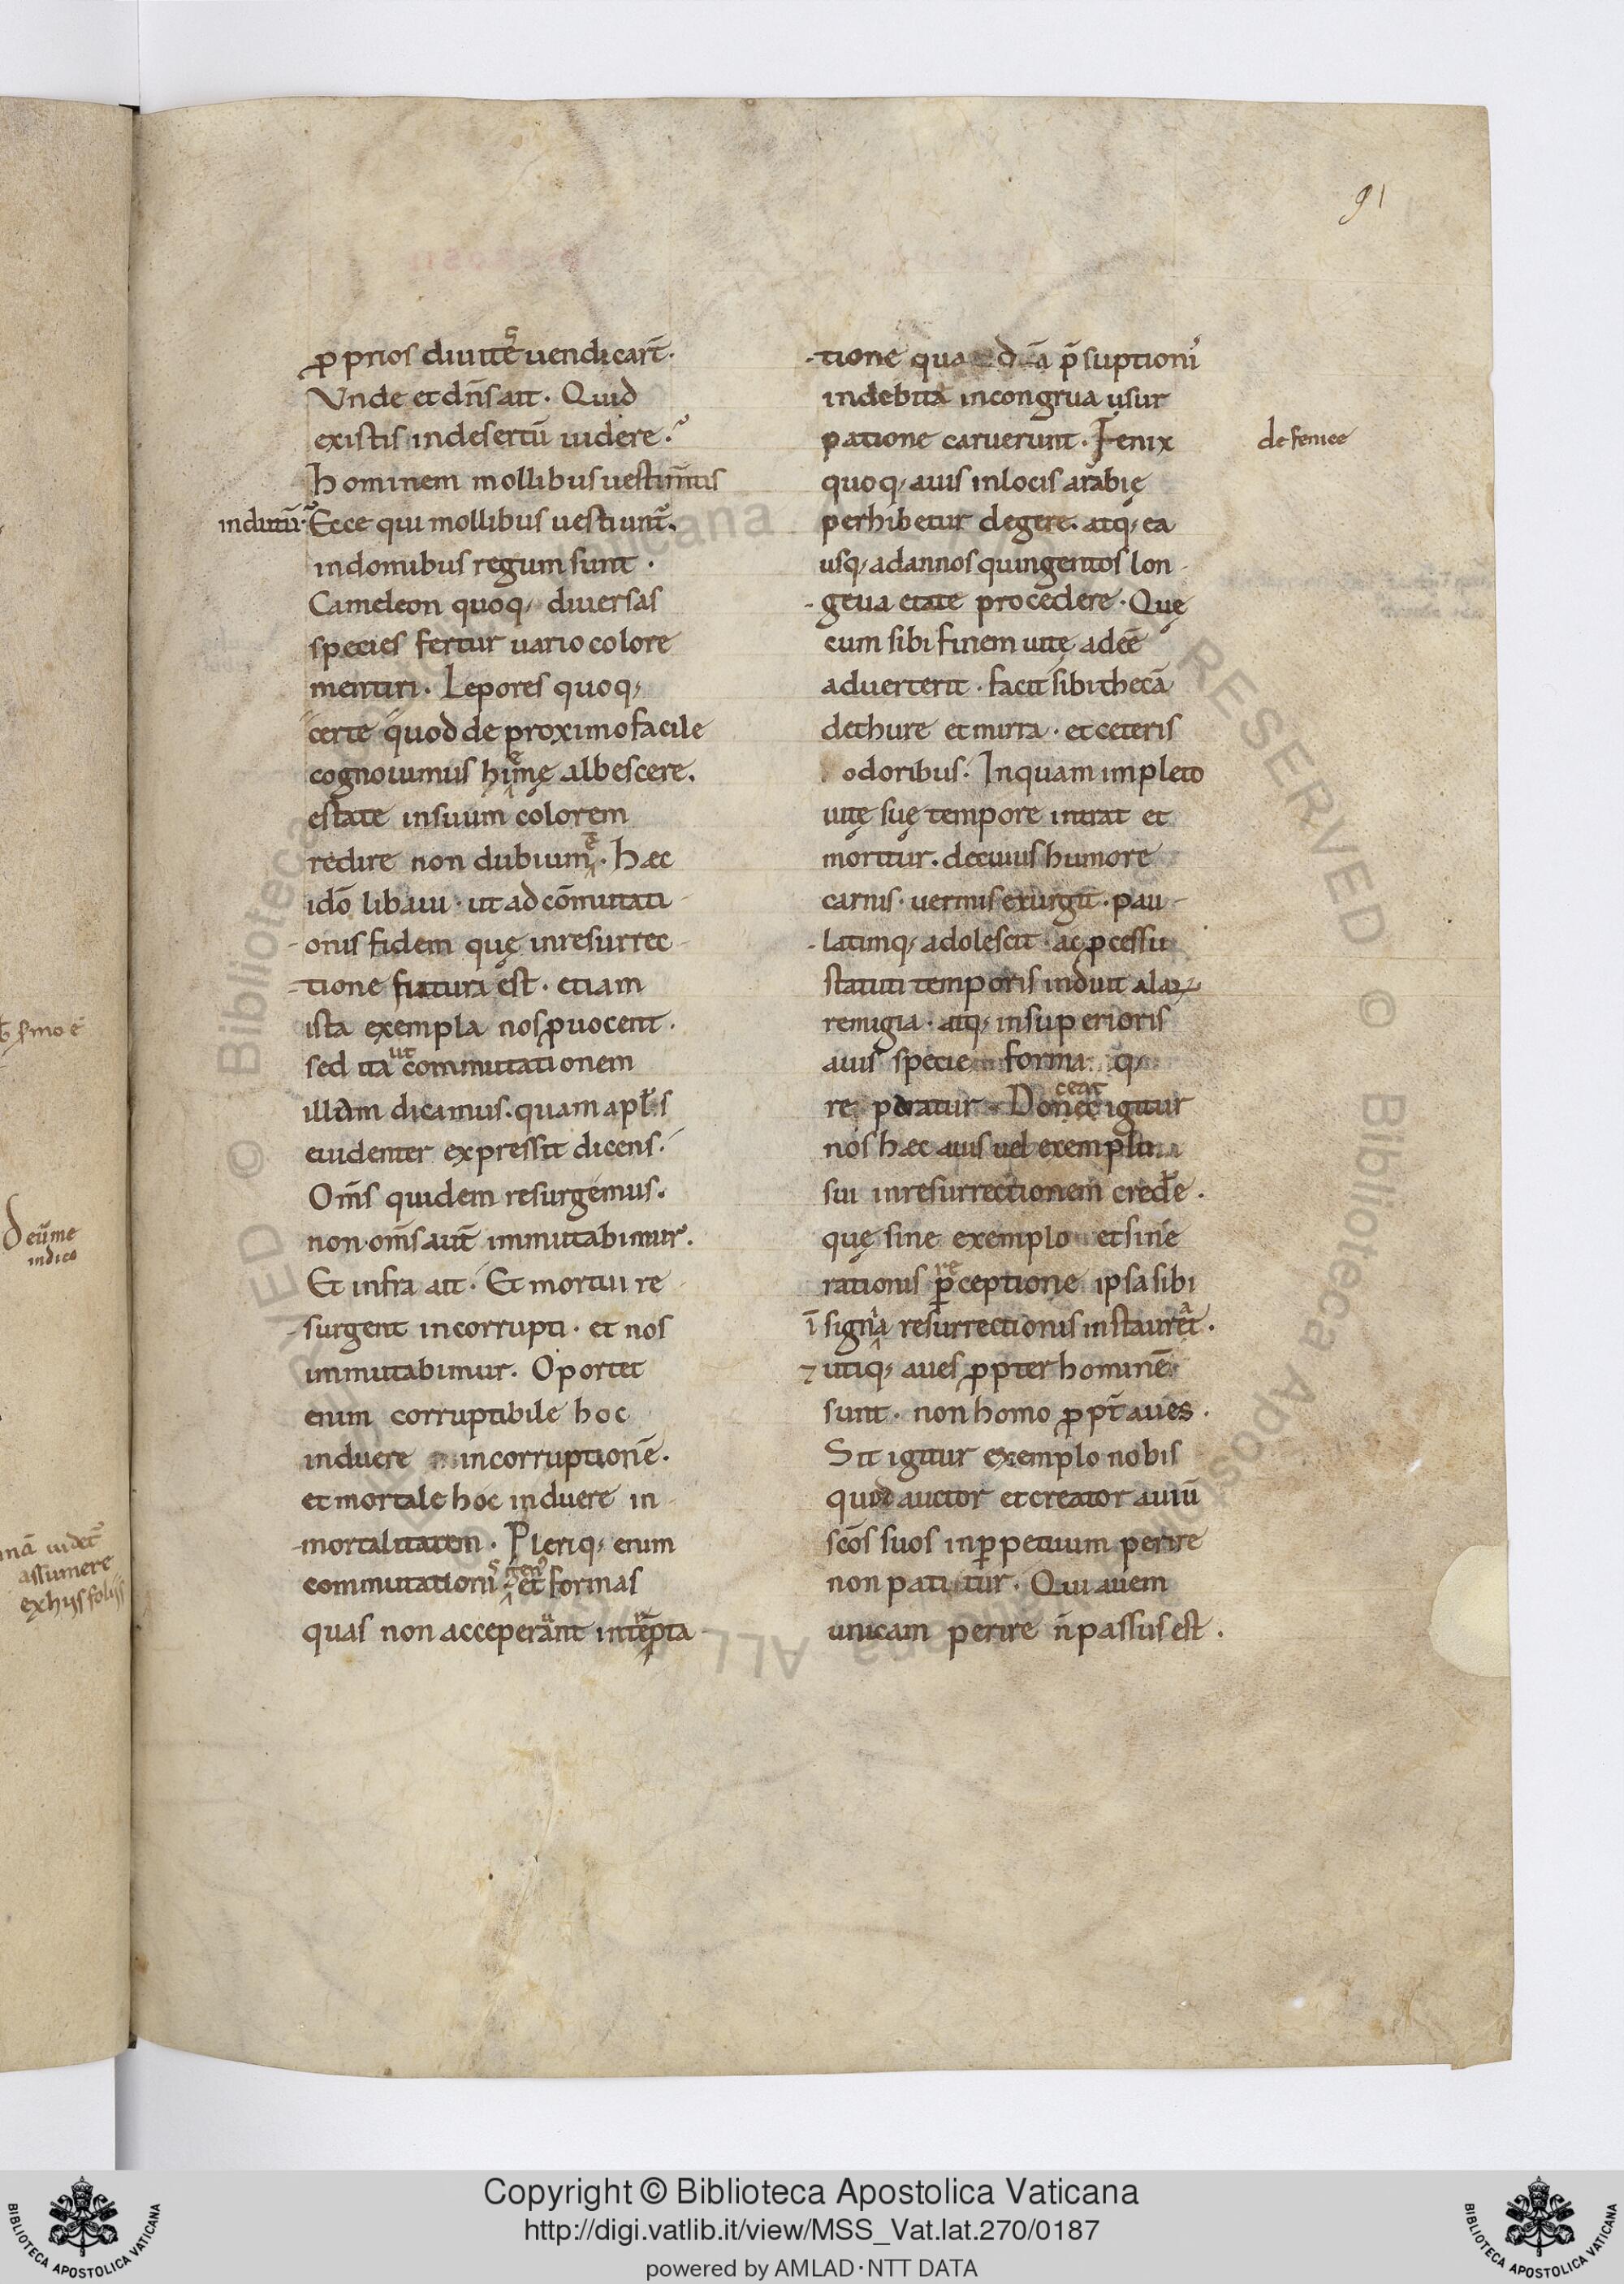 91
ꝓprios diuitēs uendicart̄.
Vnde et dn̄s ait. Quid
existis in desertū uidere?
hominem mollibus uestim̄tis
indutū. Ecce qui mollibus uestiunt᷒.
in domibus regum sunt.
Cameleon quoq; diuersas
species fertur uario colore
mentiri. Lepores quoq;
certe quod de proximo facile
cognouimus hiemę albescere.
estate in suum colorem
redire non dubium ē. Hæc
idō libaui. ut ad cōmutati-
-onis fidem quę in resurrec-
-tione futura est. etiam
ista exempla nos ꝓuocent.
sed ita ut commutationem
illam dicamus. quam apl̄s
euidenter expressit dicens.
Om̄s quidem resurgemus.
non om̄s aut̄ immutabimur.
Et infra ait. Et mortui re
-surgent incorrupti. et nos
immutabimur. Oportet
enim corruptibile hoc
induere incorruptionē.
et mortale hoc induere in-
-mortalitatem. Pleriq; enim
commutationis gen᷒ et formas
quas non acceperant int̄ꝑta-
-tione quadā p̄suptionis
indebita incongrua usur
patione caruerunt. Fenix
de fenice
quoq; auis in locis arabię
perhibetur degere. atq; ea
usq; ad annos quingentos lon-
-geua etate procedere. Quę
cum sibi finem uitę adeē
aduerterit. facit sibi thecā
de thure et mirra. et ceteris
odoribus. In quam impleto
uitę suę tempore intrat et
moritur. de cuius humore
carnis. uermis exurgit. pau-
-latimq; adolescit. ac ꝓcessu
statuti temporis induit alaꝝ
remigia. atq; in superioris
auis specie forma q;
reparatur. Doceat igitur
nos hæc auis uel exemplo
sui in resurrectionem credere.
quę sine exemplo et sine
rationis ꝑceptione ipsa sibi
īsignia resurrectionis instaurat.
⁊ utiq; aues ꝓpter hominē
sunt. non homo ꝓpt̄ aues.
Sit igitur exemplo nobis
quia auctor et creator auiū
sc̄os suos in ꝑpetuum perire
non patitur. Qui auem
unicam perire n̄ passus est.
Deūme
indico
assumere
ex hijs folijs
Copyright © Biblioteca Apostolica Vaticana
http://digi.vatlib.it/view/MSS_Vat.lat.270/0187
powered by AMLAD·NTT DATA
BIBLIOTECA APOSTOLICA VATICANA
BIBLIOTECA APOSTOLICA VATICANA